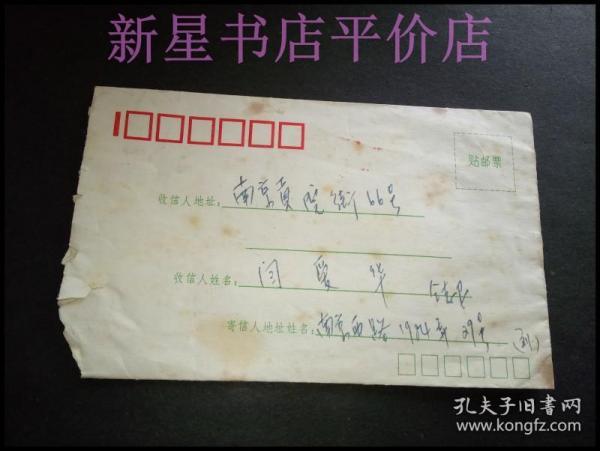 新星书店平价店
贴邮票
收信人地址: 南京贡院街66号
收信人姓名: 闫夏华
寄信人地址姓名: 南京西路1974弄29号
孔夫子旧书网
www.kongfz.com